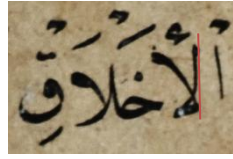 الْأَخْلَاقِ